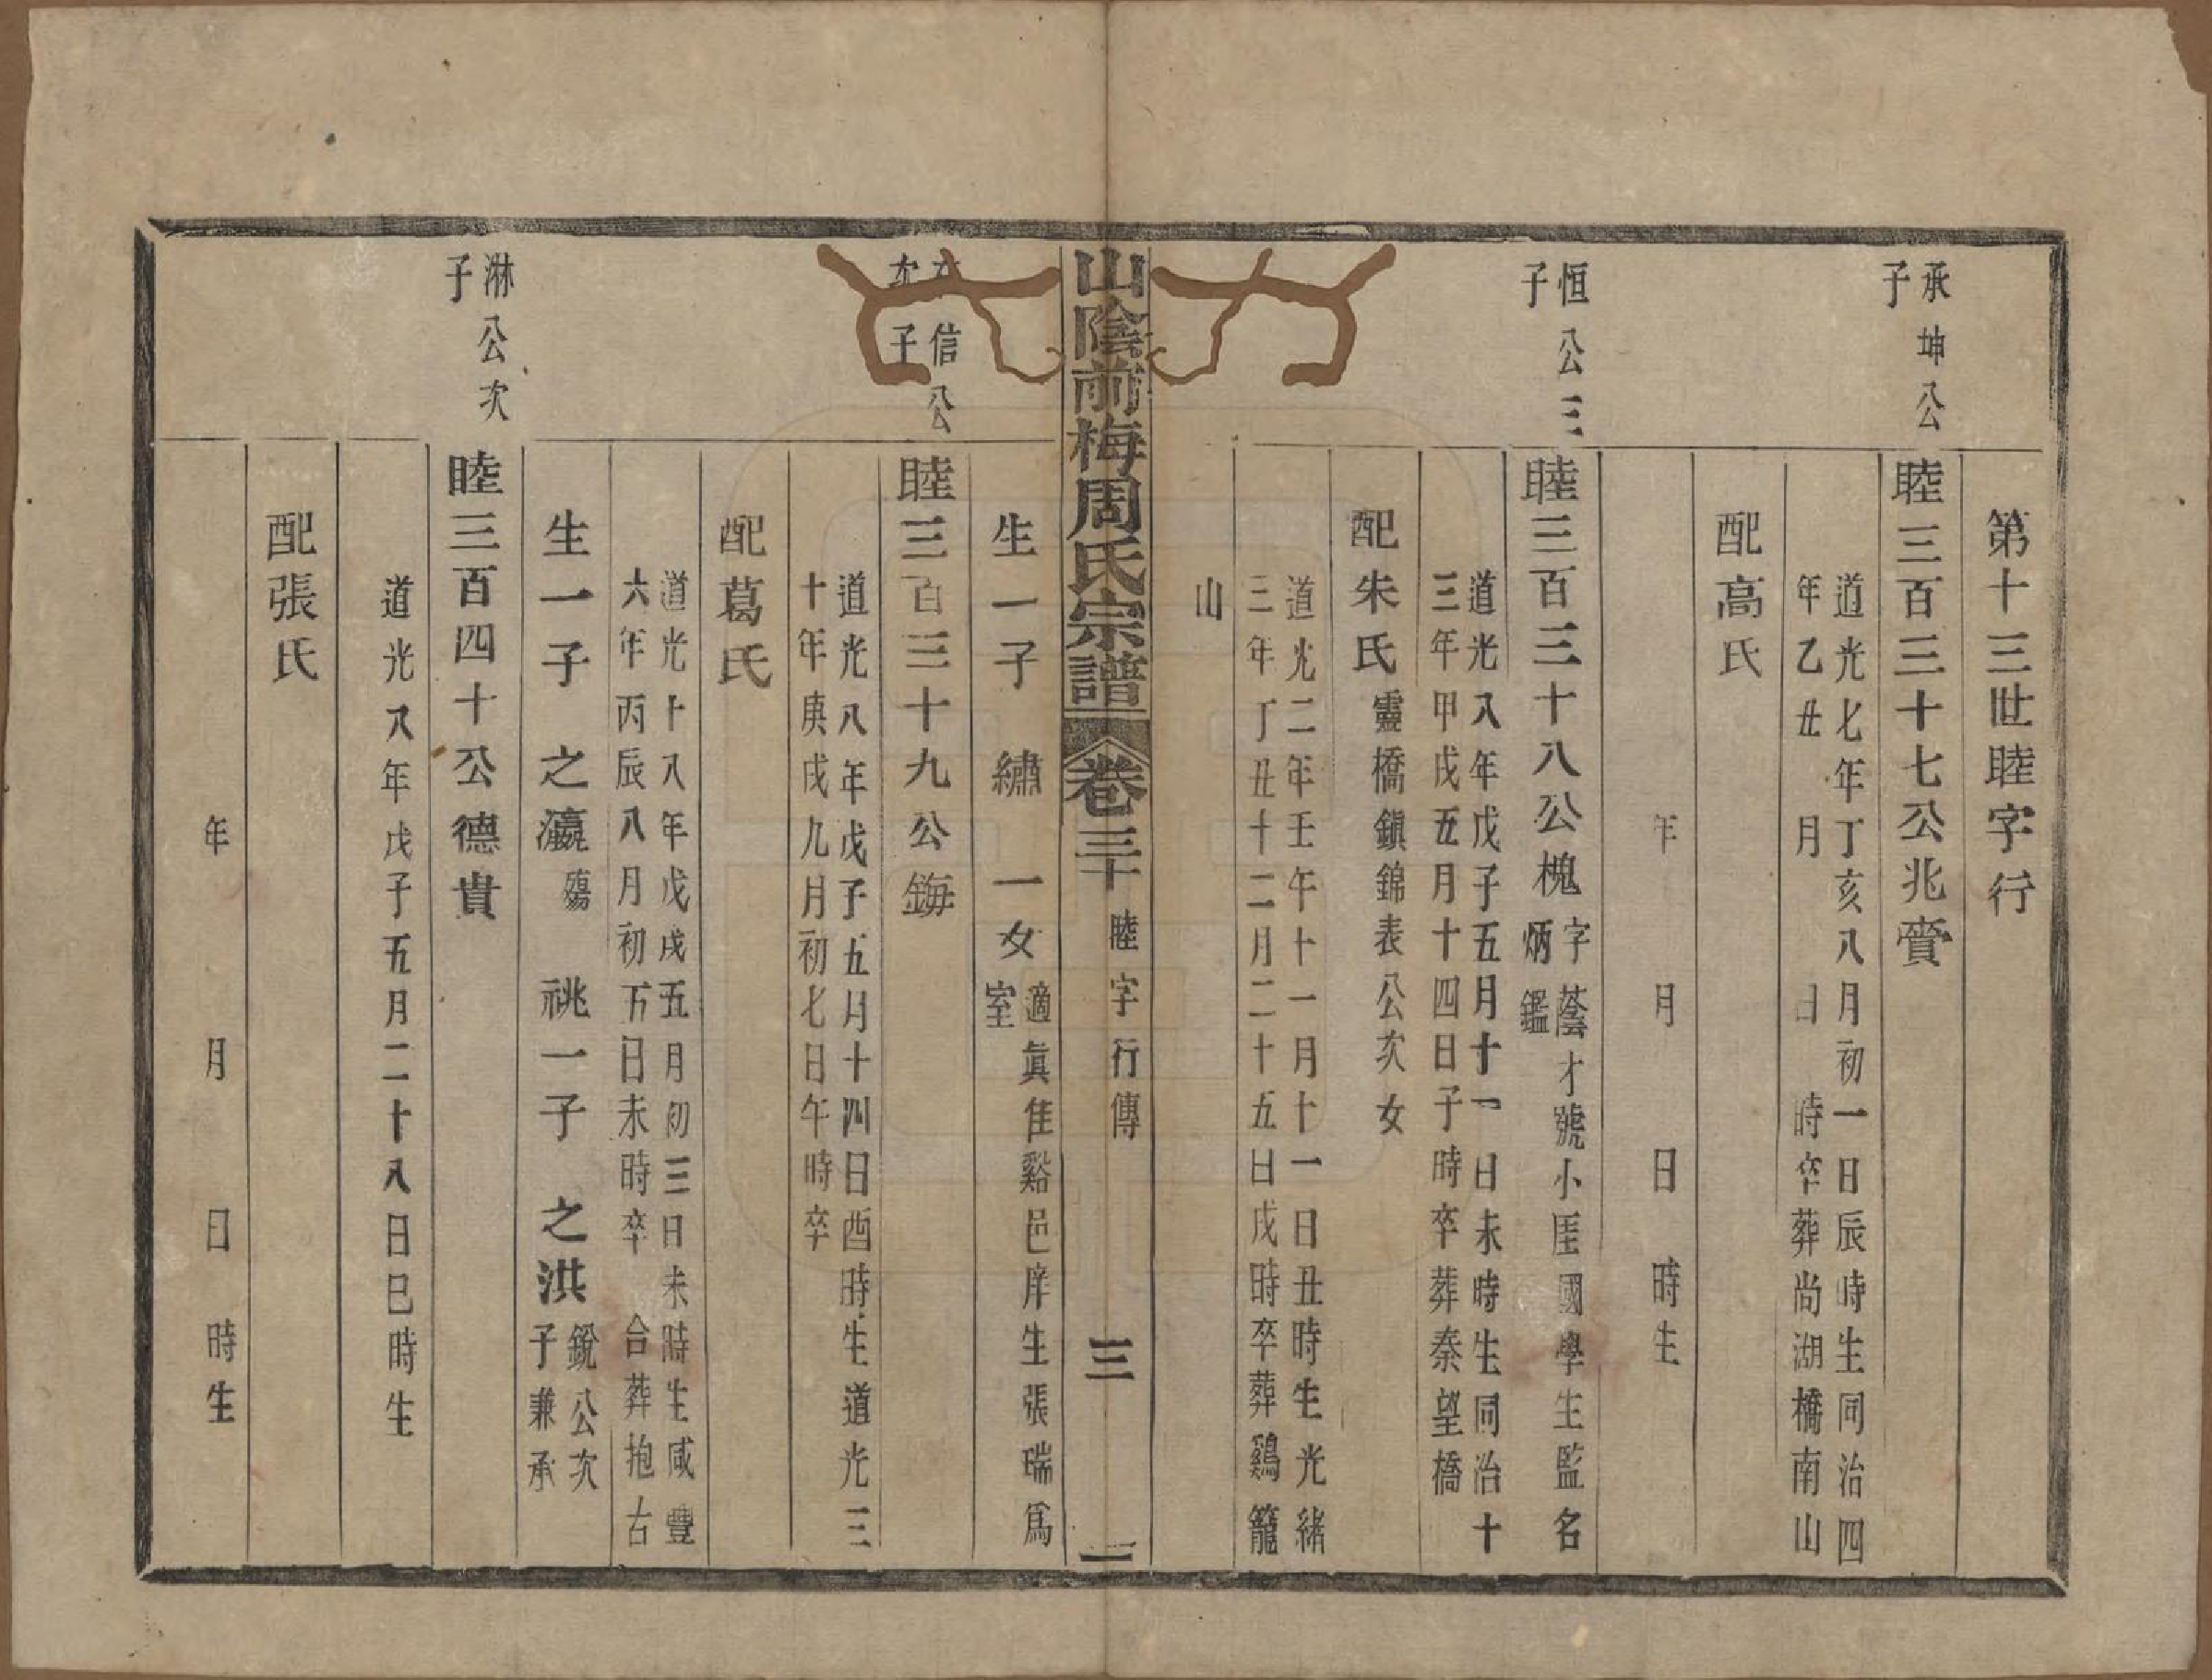 第十三世睦字行
承坤公
子
睦三百三十七公兆賫
道光七年丁亥八月初一日辰時生同治四
年乙丑　月　　日　時卒葬尚湖橋南山
配高氏
年　月　日　時生
恒公三
子
睦三百三十八公槐
字蔭才號小厓國學生監名
炳鑑
道光八年戊子五月十一日未時生同治十
三年甲戌五月十四日子時卒葬秦望橋
配朱氏
靈橋鎭錦表公次女
道光二年壬午十一月十一日丑時生光緒
三年丁丑十二月二十五日戌時卒葬鷄籠
山
山陰前梅周氏宗譜
卷三十
睦字行傳
三
生一子　繡　一女
適眞佳谿邑庠生張瑞爲
室
信公
次子
睦三百三十九公䥈
道光八年戊子五月十四日酉時生道光三
十年庚戌九月初七日午時卒
配葛氏
道光十八年戊戌五月初三日未時生咸豐
六年丙辰八月初五日未時卒　合葬抱古
生一子　之瀛
殤
祧一子　之洪
銳公次
子兼承
淋公次
子
睦三百四十公德貴
道光八年戊子五月二十八日巳時生
配張氏
年　月　日　時生